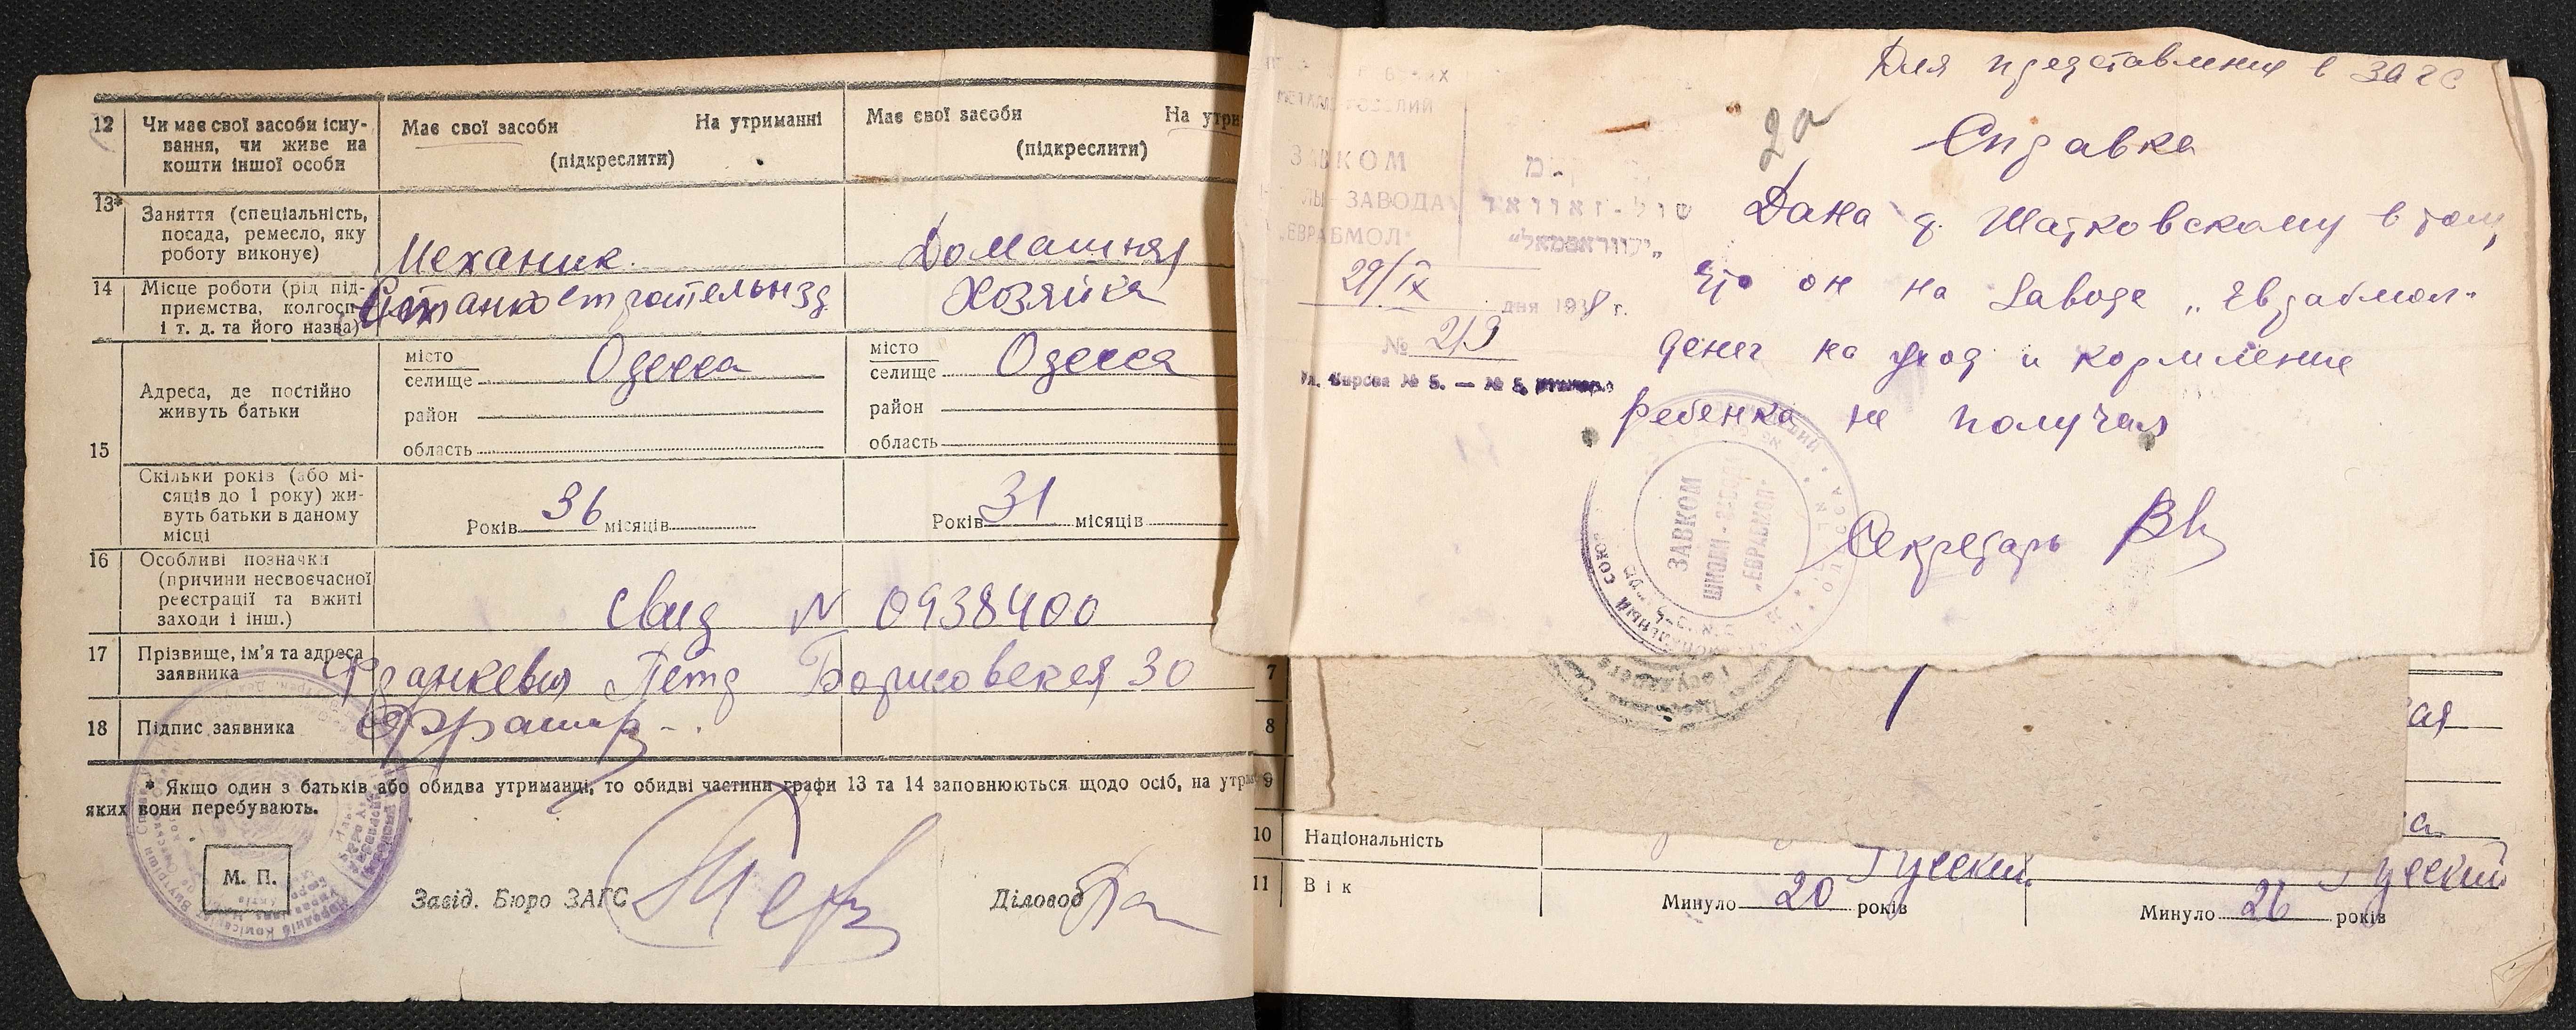 12 Чи має свої засоби існу-
вання, чи живе на
кошти іншої особи
Має свої засоби На утриманні
(підкреслити)
Має свої засоби На утри
(підкреслити)
13* Заняття (спеціальність,
посада, ремесло, яку
роботу виконує)
Механик.
Домашняя
14 Місце роботи (рід під-
приємства, колгосп
і т. д. та його назва)
Станкостроительн зд
Хозяйка
15 Адреса, де постійно
живуть батьки
місто
селище Одесса
район
область
місто
селище Одесса
район
область
Скільки років (або мі-
сяців до 1 року) жи-
вуть батьки в даному
місці
Років 36 місяців
Років 31 місяців
16 Особливі позначки
(причини несвоєчасної
реєстрації та вжиті
заходи і інш.)
Свид N 0938400
17 Прізвище, ім'я та адреса
заявника
Франкевич Петр Борисовская 30
18 Підпис заявника
* Якщо один з батьків або обидва утриманці, то обидві частини графи 13 та 14 заповнюються щодо осіб, на утрим
яких вони перебувають.
М. П.
Завід. Бюро ЗАГС
Діловод
Для представления в ЗАГС
2а
Справка
ЗАВКОМ
ЗАВОДА
„ЕВРАБМОЛ"
שול-זאוואד
29/IX дня 193 г.
№ 219
Ул. Кирова № 5. — № 5
Дана т. Шатковскому в том,
что он на заводе „Еврабмол"
денег на уход и кормление
ребенка не получал
Секретарь
ЗАВКОМ
ШКОЛЫ-ЗАВОДА
„ЕВРАБМОЛ"
ОДЕССА
7
8
ая
9
10 Національність
Русский
Русский
11 Вік
Минуло 20 років
Минуло 26 років